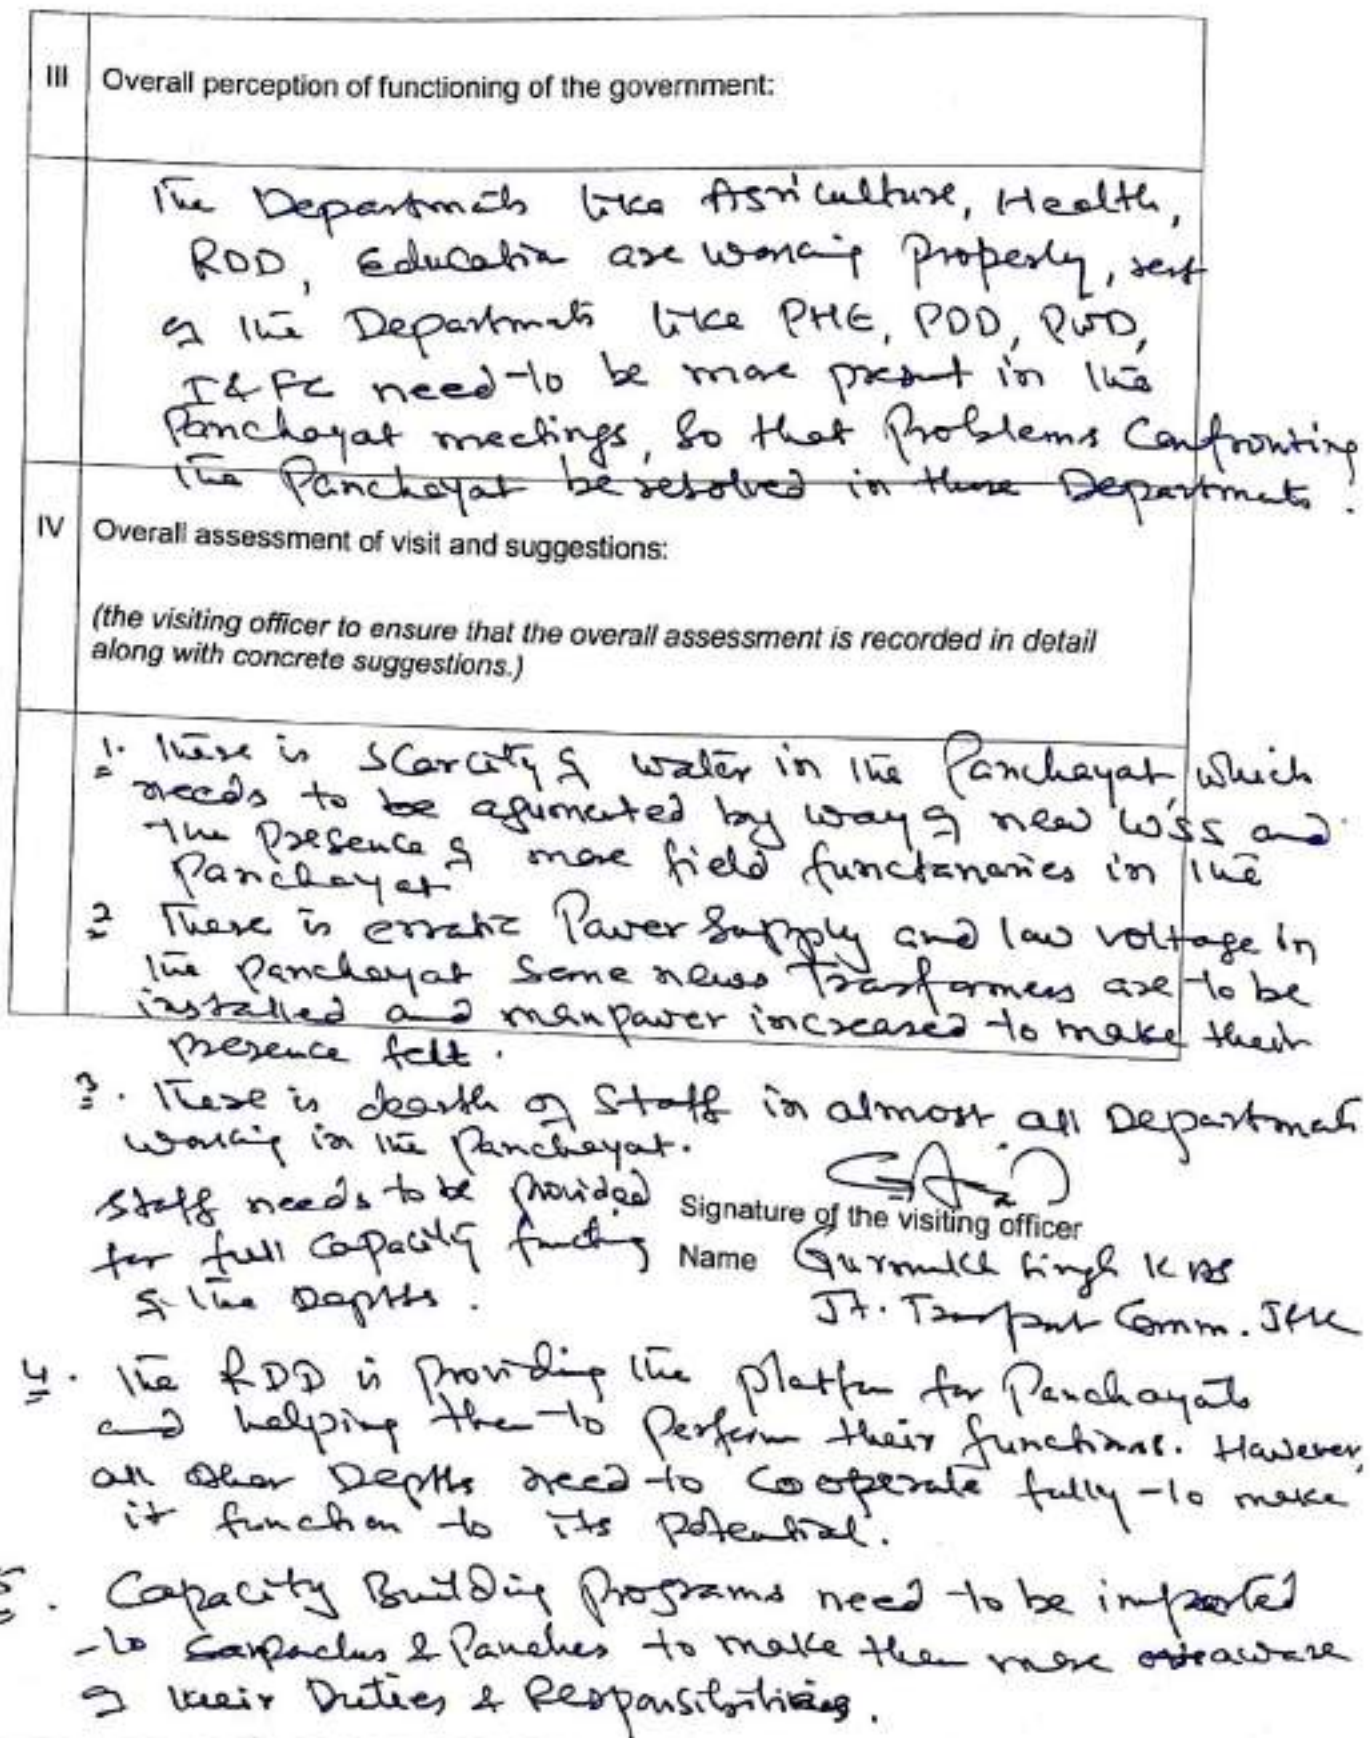 III Overall perception of functioning of the government:
The Departments like Agriculture, Health,
RDD, Education are working properly, rest
of the Departments like PHE, PDD, PWD,
I&FC need to be more present in the
Panchayat meetings, so that Problems Confronting
the Panchayat be resolved in these Departments.
IV Overall assessment of visit and suggestions:
(the visiting officer to ensure that the overall assessment is recorded in detail
along with concrete suggestions.)
1. There is scarcity of water in the Panchayat, which
needs to be agumented by way of new WSS and
the presence of more field functanaries in the
Panchayat
2 There is erratic Power Supply and low voltage in
the panchayat Some news Trasformers are to be
installed and manpower increased to make their
presence felt.
3. There is dearth of Staff in almost all Departments
working in the Panchayat.
Staff needs to be provided
for full capacity functing
of the Deptts.
Signature of the visiting officer
Name Gurmukh Singh KAS
Jt. Transport Comm. J&K
4. The RDD is providing the platfrm for Panchayats
and helping them to perform their functions. However,
all other Deptts need to cooperate fully to make
it function to its Potential.
5. Capacity Building Programs need to be imparted
to Sarpanches & Panches to make them more aware
of their Duties & Responsibilities.